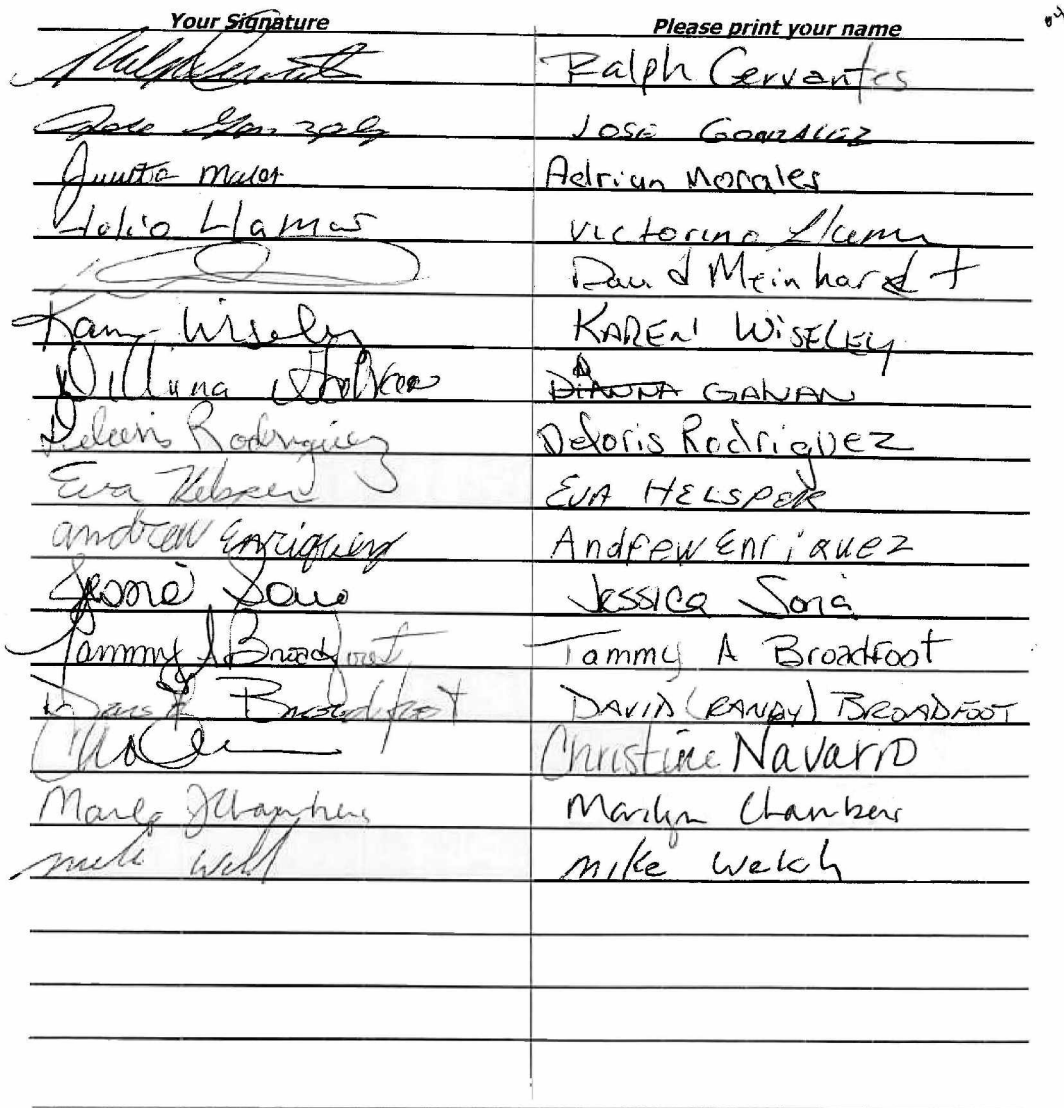 Your Signature Please print your name
Ralph Cervantes
Jose JOSE GONZALEZ
Adrian Morales
Llamas Victorino
David Meinhardt
Wiseley KAREN WISELEY
DIANNA GANAN
Rodriguez Deloris Rodriguez
Eva Helsper EVA HELSPER
andrew Enriquez Andrew Enriquez
Jessica Soria
Tammy A Broadfoot Tammy A Broadfoot
Broadfoot DAVID (RANDY) BROADFOOT
Christine Navarro
Chambers Marilyn Chambers
mike mike welch